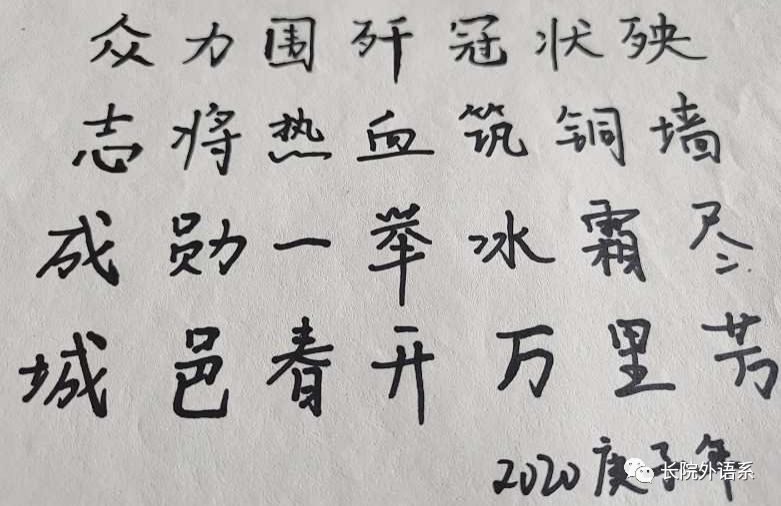 众力围歼冠状殃
志将热血筑铜墙
成勋一举冰霜尽
城邑春开万里芳
2020庚子年
长院外语系